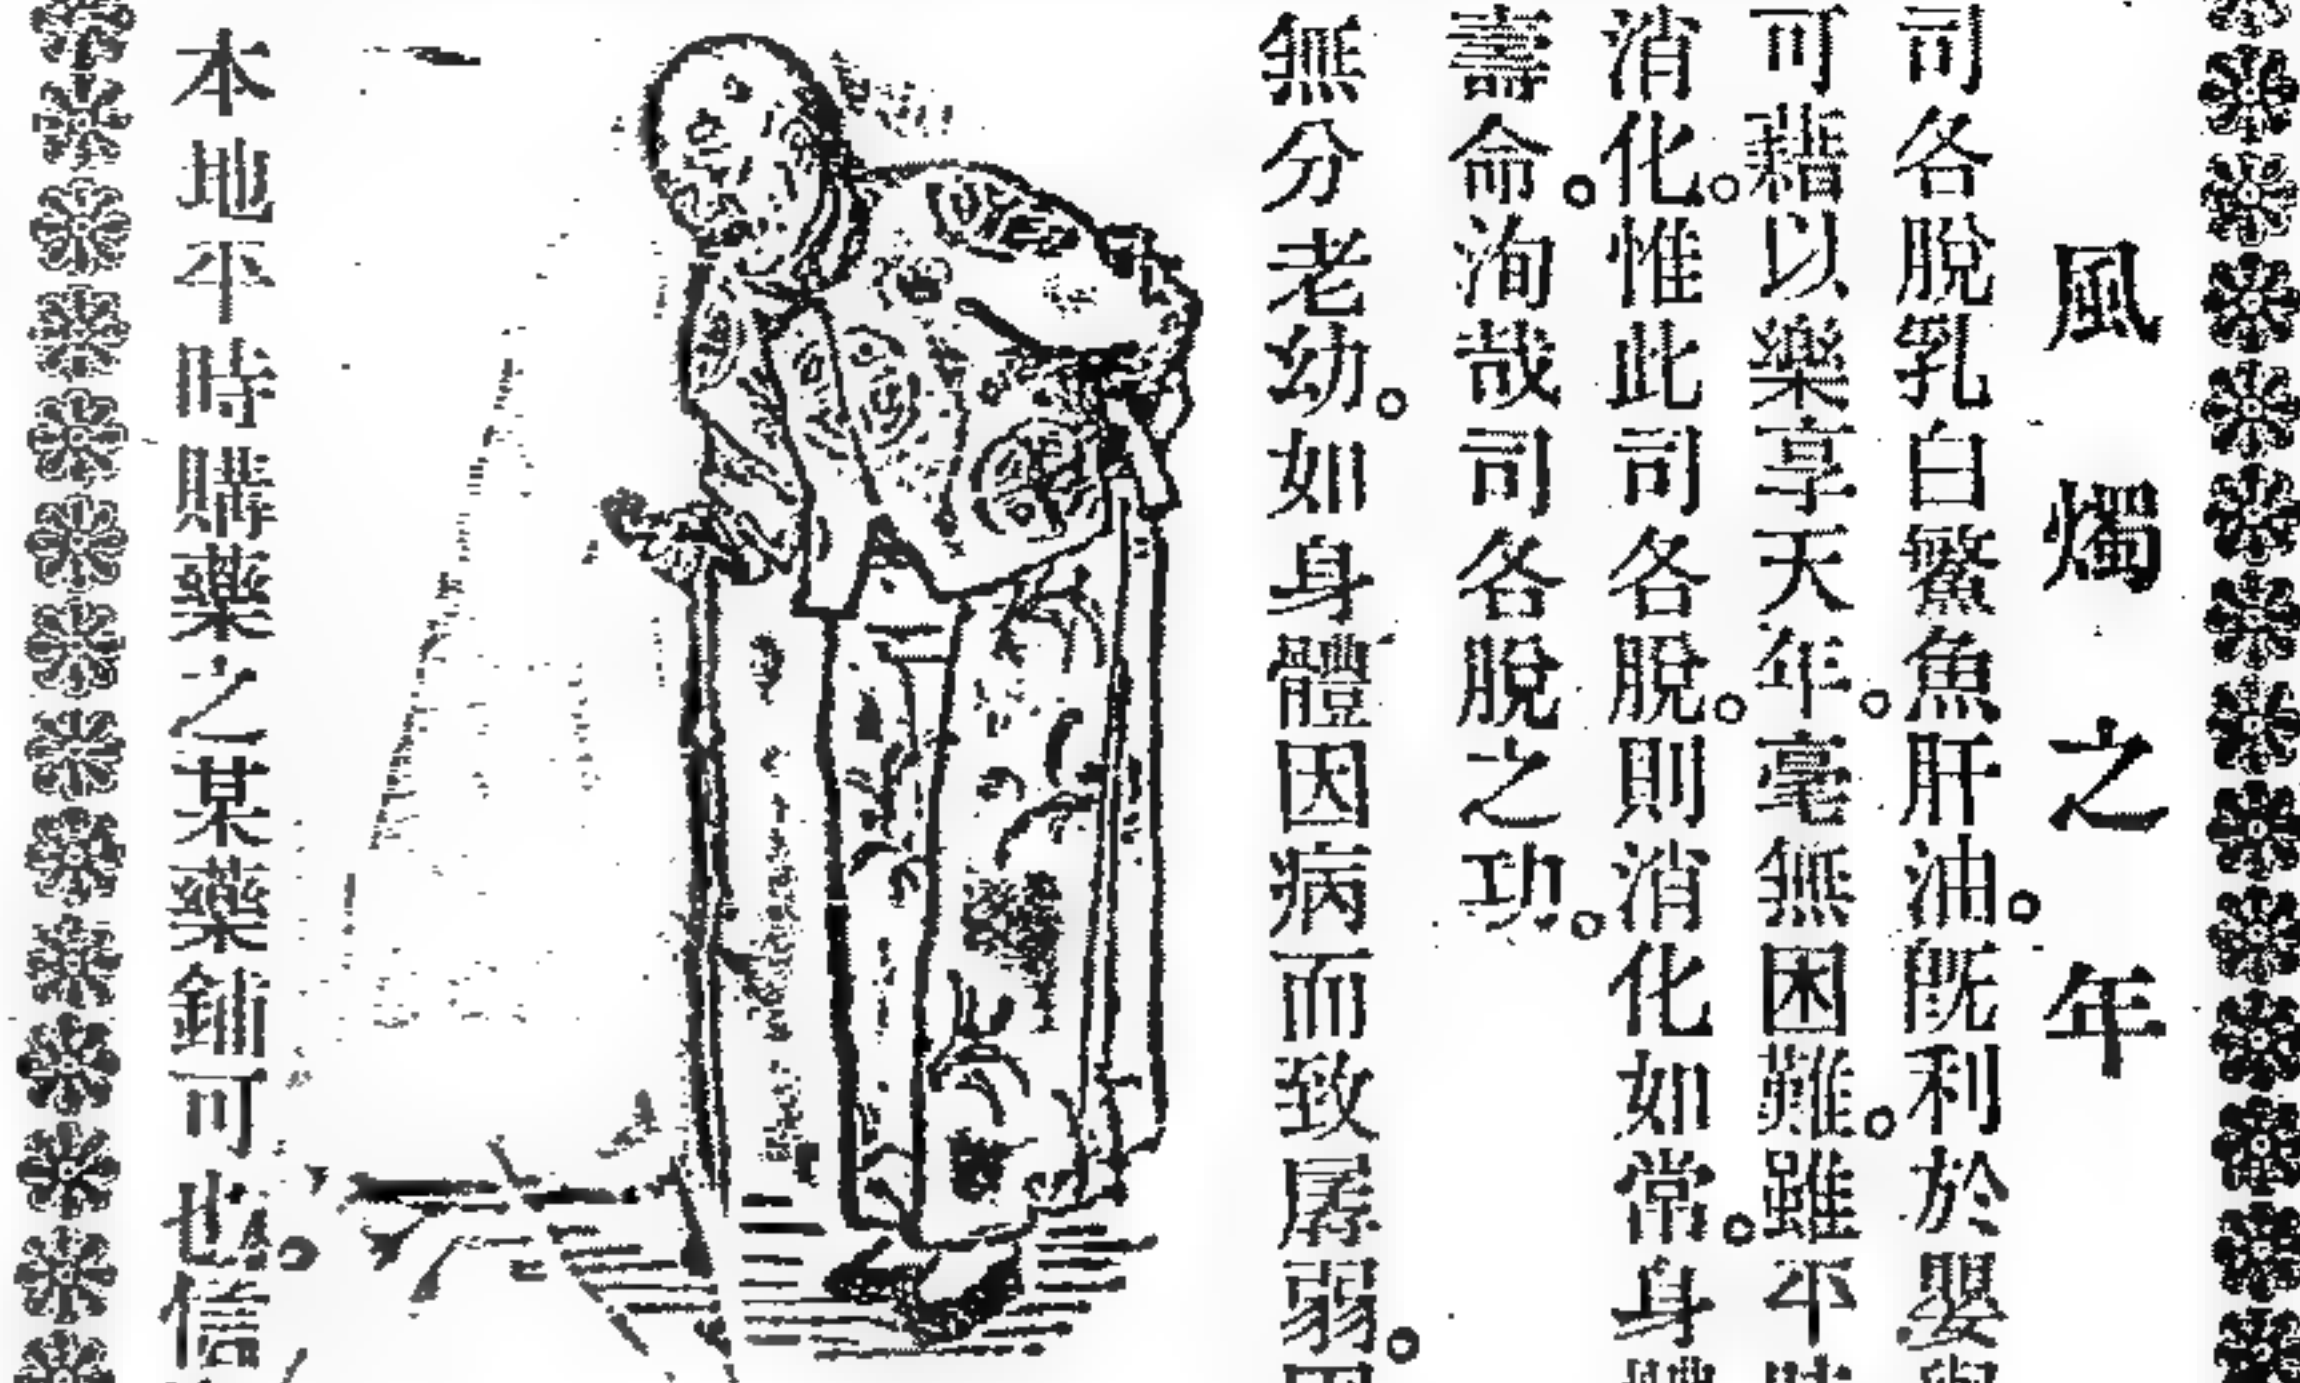 風燭之年
司各脫乳白鰵魚肝油。既利於嬰
可藉以樂享天年。毫無困難。雖平時
消化。惟此司各脫。則消化如常。身體
壽命。洵哉司各脫之功。
無分老幼。如身體因病而致孱弱。
本地平時購藥之某藥鋪可也。信